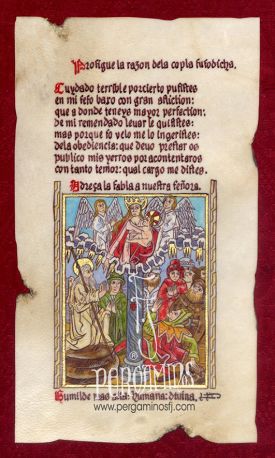 Prosigue la razon dela copla susodicha.
Cuydado terrible por cierto pusistes
en mi seso baxo con gran afliction:
que a donde teneys mayor perfection:
De mi remendado leuar le quisistes:
mas porque so velo me lo ingeristes:
dela obediencia: que deuo prestar os
publico mis yerros por acontentaros
con tanto temor: qual cargo me distes.
Adreça la fabla a nuestra señora.
PERGAMINOS
www.pergaminosfj.com
Humilde mas humana: diuina.